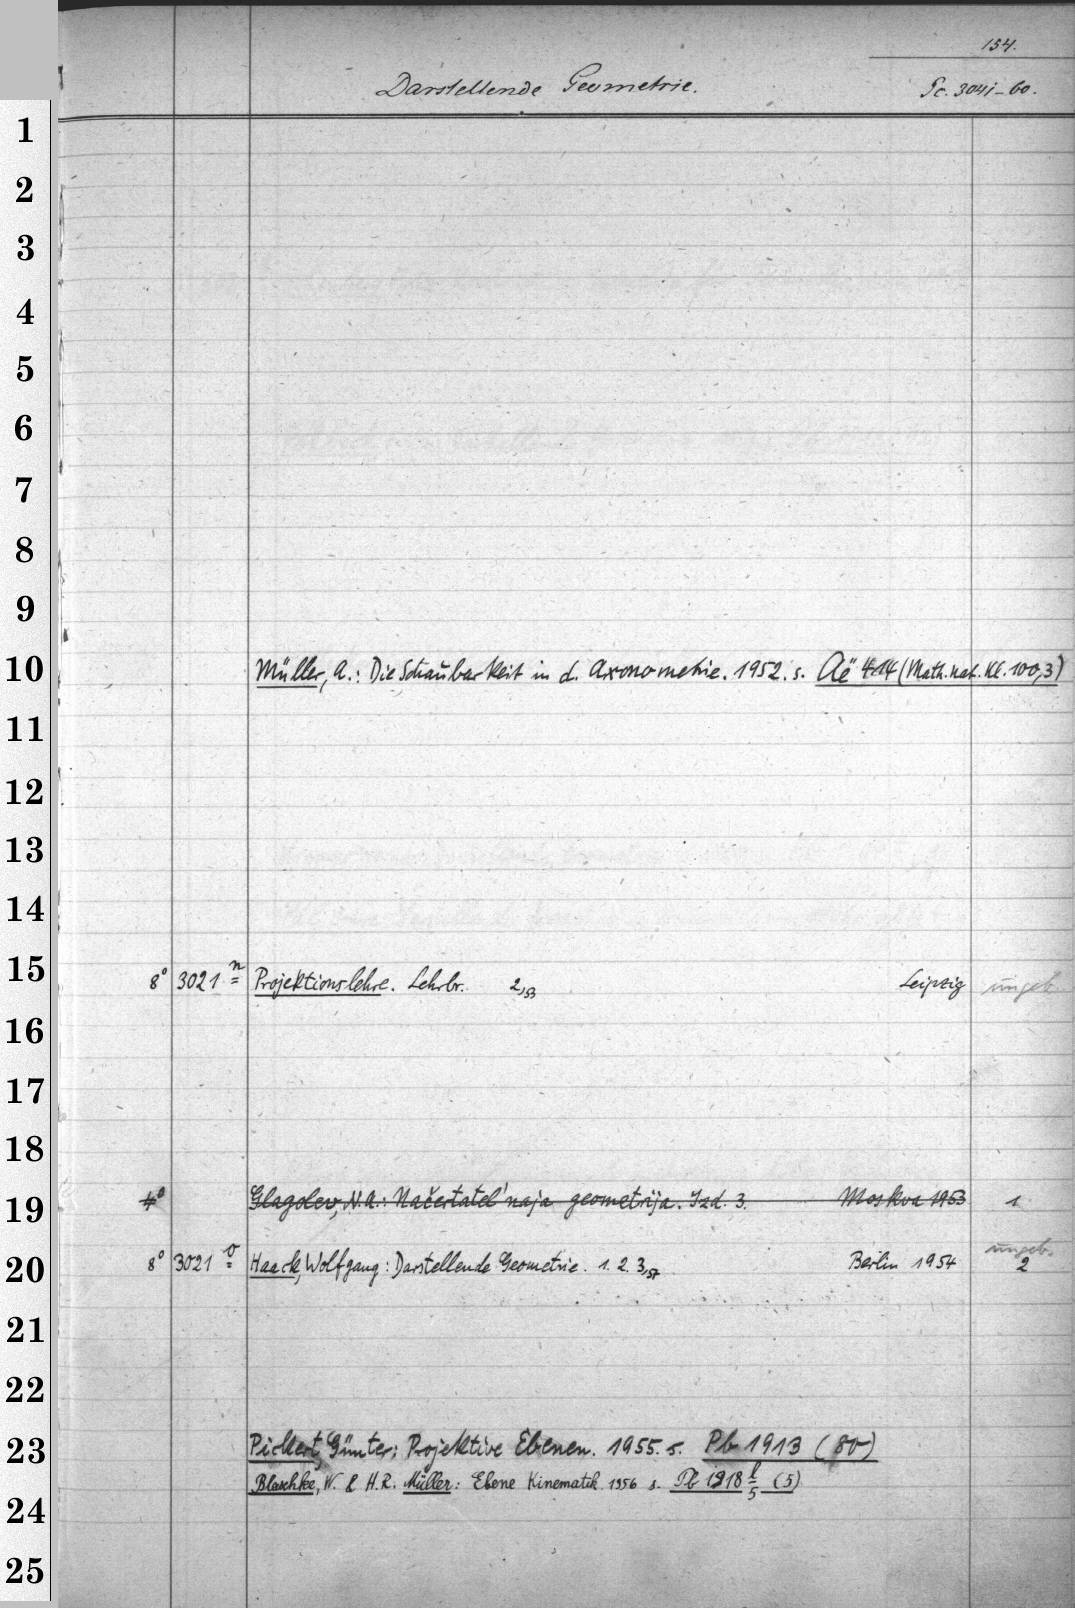 154.
Darstellende Geometrie. Pc. 3041-60.
1
2
3
4
5
6
7
8
9
10 Müller, A.: Die Schaubarkeit in d. Axonometrie. 1952. s. Aë 414 (Math. nat. Kl. 100,3)
11
12
13
14
15 8° 3021 n Projektionslehre. Lehrbr. 2,53 Leipzig ungeb.
16
17
18
19 4° Glagolev, N.A.: Načertatel'naja geometrija. Izd. 3. Moskva 1953 1
ungeb.
20 8° 3021 o Haack, Wolfgang: Darstellende Geometrie. 1. 2. 3,57 Berlin 1954 2
21
22
23 Pickert, Günter: Projektive Ebenen. 1955. s. Pb 1913 (80)
24 Blaschke, W. & H.R. Müller: Ebene Kinematik 1956 s. Pb 1918 (5)
25